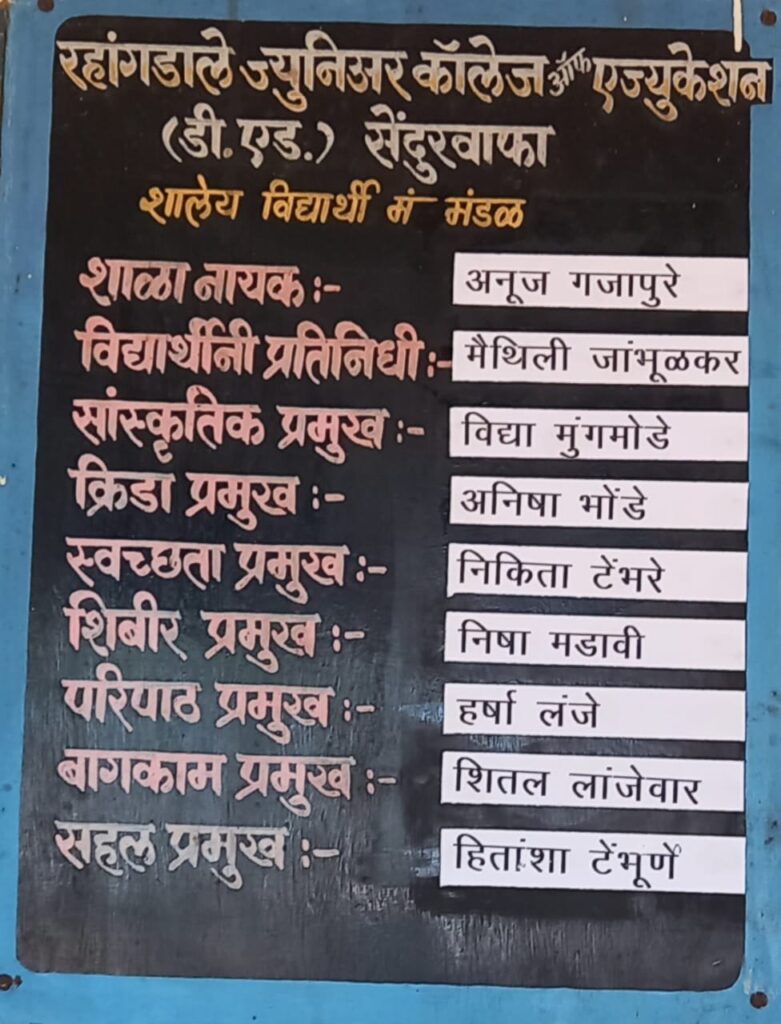 रहांगडाले ज्युनिअर कॉलेज ऑफ एज्युकेशन
(डी.एड.) सेंदुरवाफा
शालेय विद्यार्थी मं मंडळ
शाळा नायक :- अनूज गजापुरे
विद्यार्थीनी प्रतिनिधी :- मैथिली जांभूळकर
सांस्कृतिक प्रमुख :- विद्या मुंगमोडे
क्रिडा प्रमुख :- अनिषा भोंडे
स्वच्छता प्रमुख :- निकिता टेंभरे
शिबीर प्रमुख :- निषा मडावी
परिपाठ प्रमुख :- हर्षा लंजे
बागकाम प्रमुख :- शितल लांजेवार
सहल प्रमुख :- हितांशा टेंभूर्णे